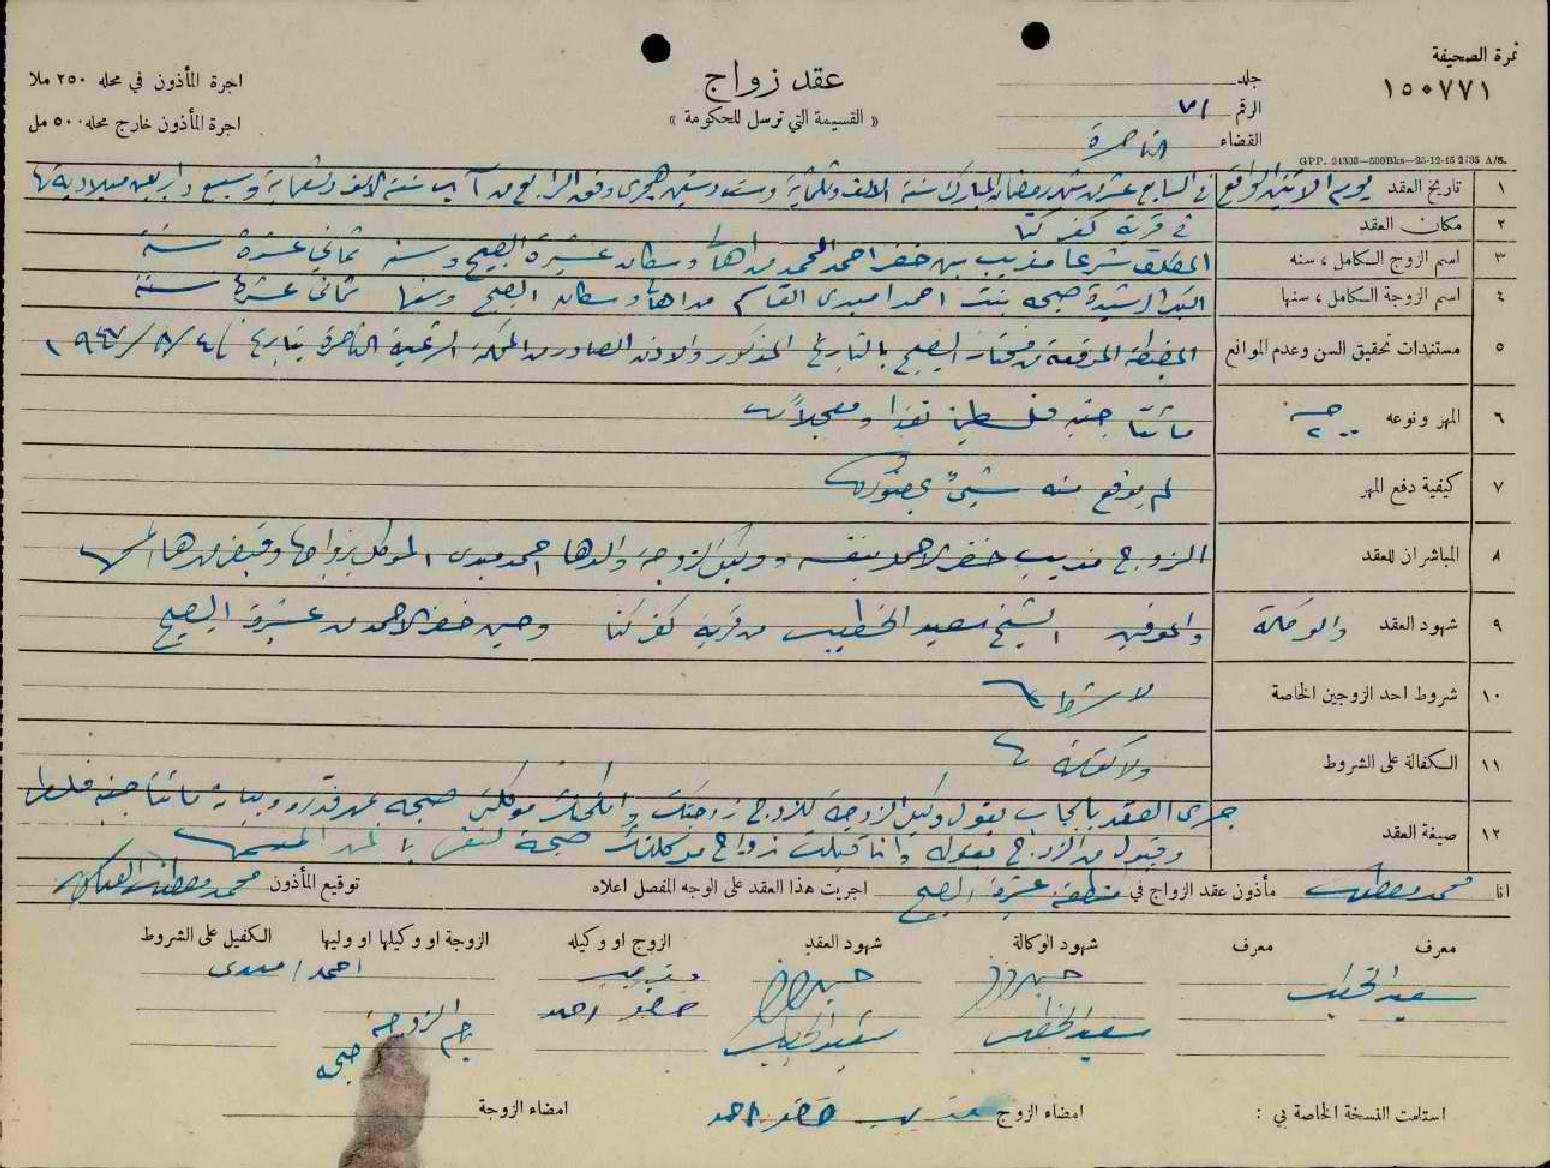 نمرة الصحيفة
١٥٠٧٧١
جلد
الرقم ٧١
القضاء الناصرة
عقد زواج
« القسيمة التي ترسل للحكومة »
اجرة المأذون في محله ٢٥٠ ملا
اجرة المأذون خارج محله ٥٠٠ مل
GPP. 24303—500Bks—25-12-45 2735 A/6.
١ تاريخ العقد يوم الاثنين الواقع في السابع عشر من شهر رمضان المبارك سنة الالف وثلثماية وست وستين هجري وفق الرابع من آب سنة الالف وتسعماية وسبع واربعين ميلادية
٢ مكان العقد في قرية كفر كنا
٣ اسم الزوج الكامل ، سنه المكلف شرعا مذيب بن خضر احمد المحمد من اهالي وسكان عشيرة الصبيح وسنه ثماني عشرة سنة
٤ اسم الزوجة الكامل ، سنها البكر الرشيدة صبحه بنت احمد اميدي القاسم من اهالي وسكان الصبيح وسنها ثماني عشرة سنة
٥ مستندات تحقيق السن وعدم المواقع المضبطة الموقعة من مختار الصبيح بالتاريخ المذكور والاذن الصادر من المحكمة الشرعية الناصرة بتاريخ ٤/٨/١٩٤٧
٦ المهر ونوعه جنيه ٢٠٠ مائتا جنيه فلسطيني نقدا ومعجلا
٧ كيفية دفع المهر لم يدفع منه شيئ بحضورنا
٨ المباشران للعقد الزوج مذيب خضر الاحمد بنفسه ووكيل الزوجة والدها احمد ميدي الموكل بزواجها وقبض مهرها
٩ شهود العقد والوكالة والمعرفين الشيخ سعيد الخطيب من قرية كفر كنا وحسن خضر الاحمد من عشيرة الصبيح
١٠ شروط احد الزوجين الخاصة لا شروط
١١ الكفالة على الشروط ولا كفالة
١٢ صيغة العقد جرى العقد بالايجاب بقول وكيل الزوجة للزوج زوجتك وانكحتك موكلتي صبحه بمهر قدره وبيانه مائتا جنيه فلسطيني
وقبول من الزوج بقوله وانا قبلت زواج موكلتك صبحة لنفسي بالمهر المسمى
انا محمد مصطفى مأذون عقد الزواج في منطقة عشيرة الصبيح اجريت هذا العقد على الوجه المفصل اعلاه توقيع المأذون محمد مصطفى
معرف معرف شهود الوكالة شهود العقد الزوج او وكيله الزوجة او وكيلها او وليها الكفيل على الشروط
سعيد الخطيب مذيب احمد اميدي
سعيد الخطيب سعيد الخطيب خضر احمد
الزوجة
صبحه
استلمت النسخة الخاصة بي : امضاء الزوج مذيب خضر احمد امضاء الزوجة